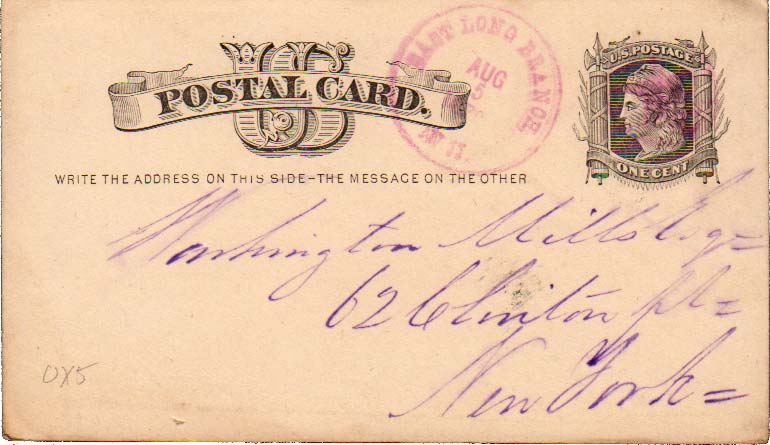 US
POSTAL CARD.
EAST LONG BRANCH
AUG
5
N. J.
U.S. POSTAGE
ONE CENT
WRITE THE ADDRESS ON THIS SIDE-THE MESSAGE ON THE OTHER
Washington Mills Esq=
62 Clinton Pl=
New York=
0X5